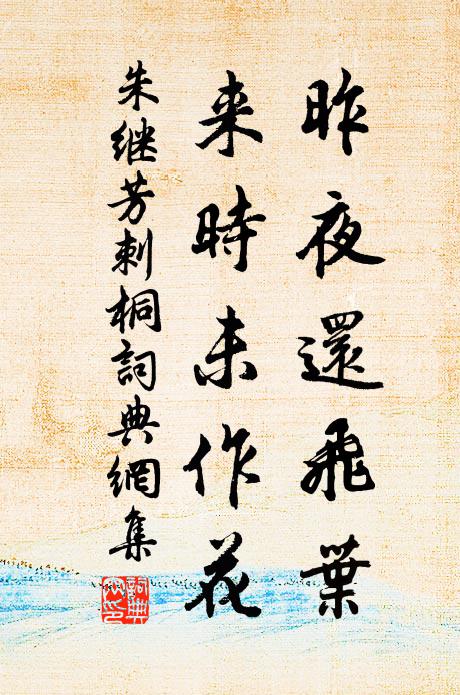 昨夜還飛葉
来時未作花
朱继芳刺桐詞典網集